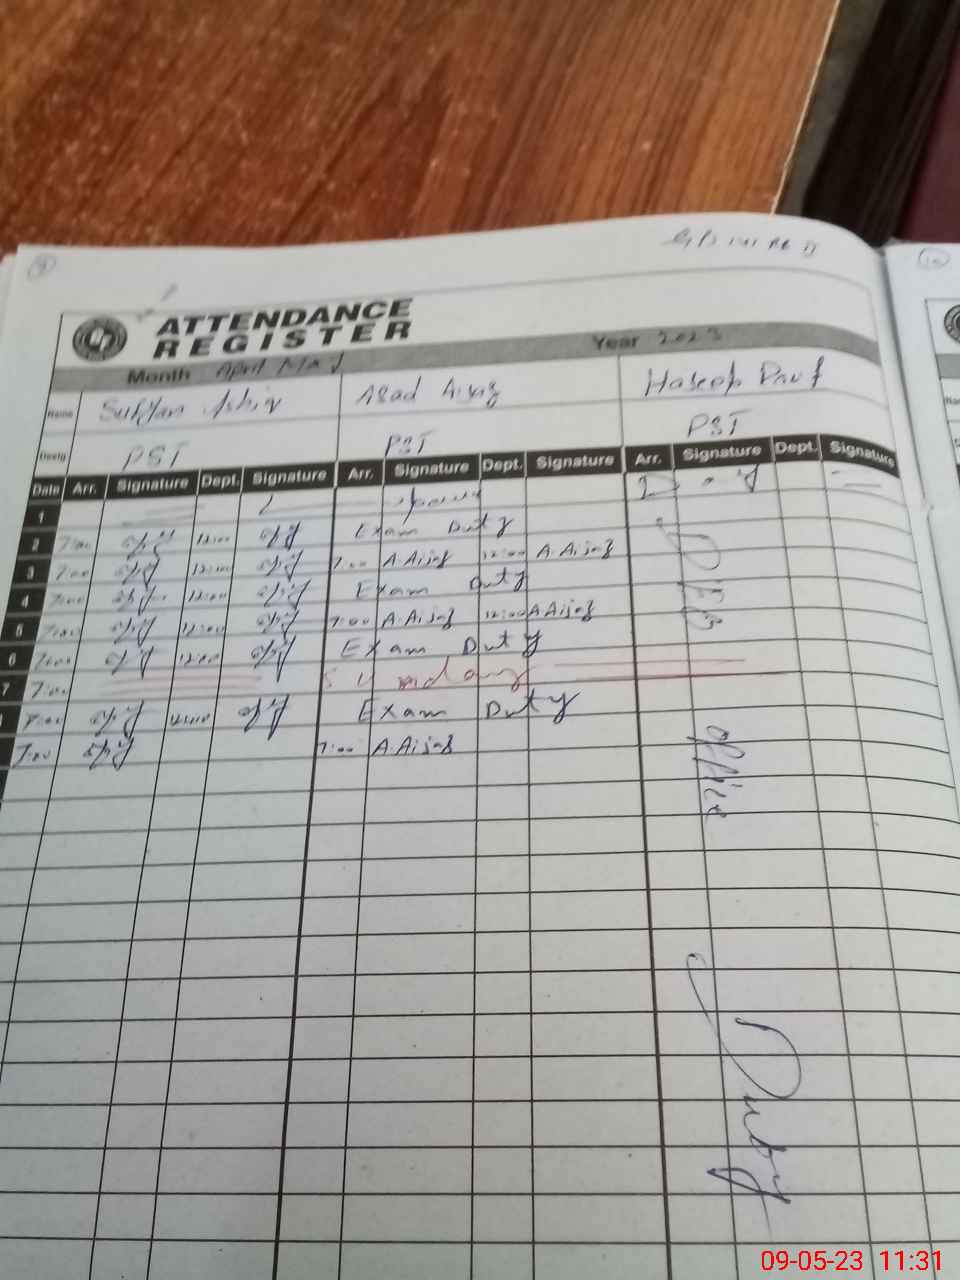 9
ATTENDANCE
REGISTER
Month April May Year 2023
Name Asad Aijaz
Desig PST PST PST
Date Arr. Signature Dept. Signature Arr. Signature Dept. Signature Arr. Signature Dept. Signature
1
2 7:00 12:00 Exam Duty
3 7:00 12:00 7:00 A.Aijaz 12:00 A.Aijaz
4 7:00 12:00 Exam Duty
5 7:00 12:00 7:00 A.Aijaz 12:00 A.Aijaz
6 7:00 12:00 Exam Duty
7 7:00 Sunday
7:00 12:00 Exam Duty
7:00 7:00 A.Aijaz
office
Duty
10
09-05-23 11:31